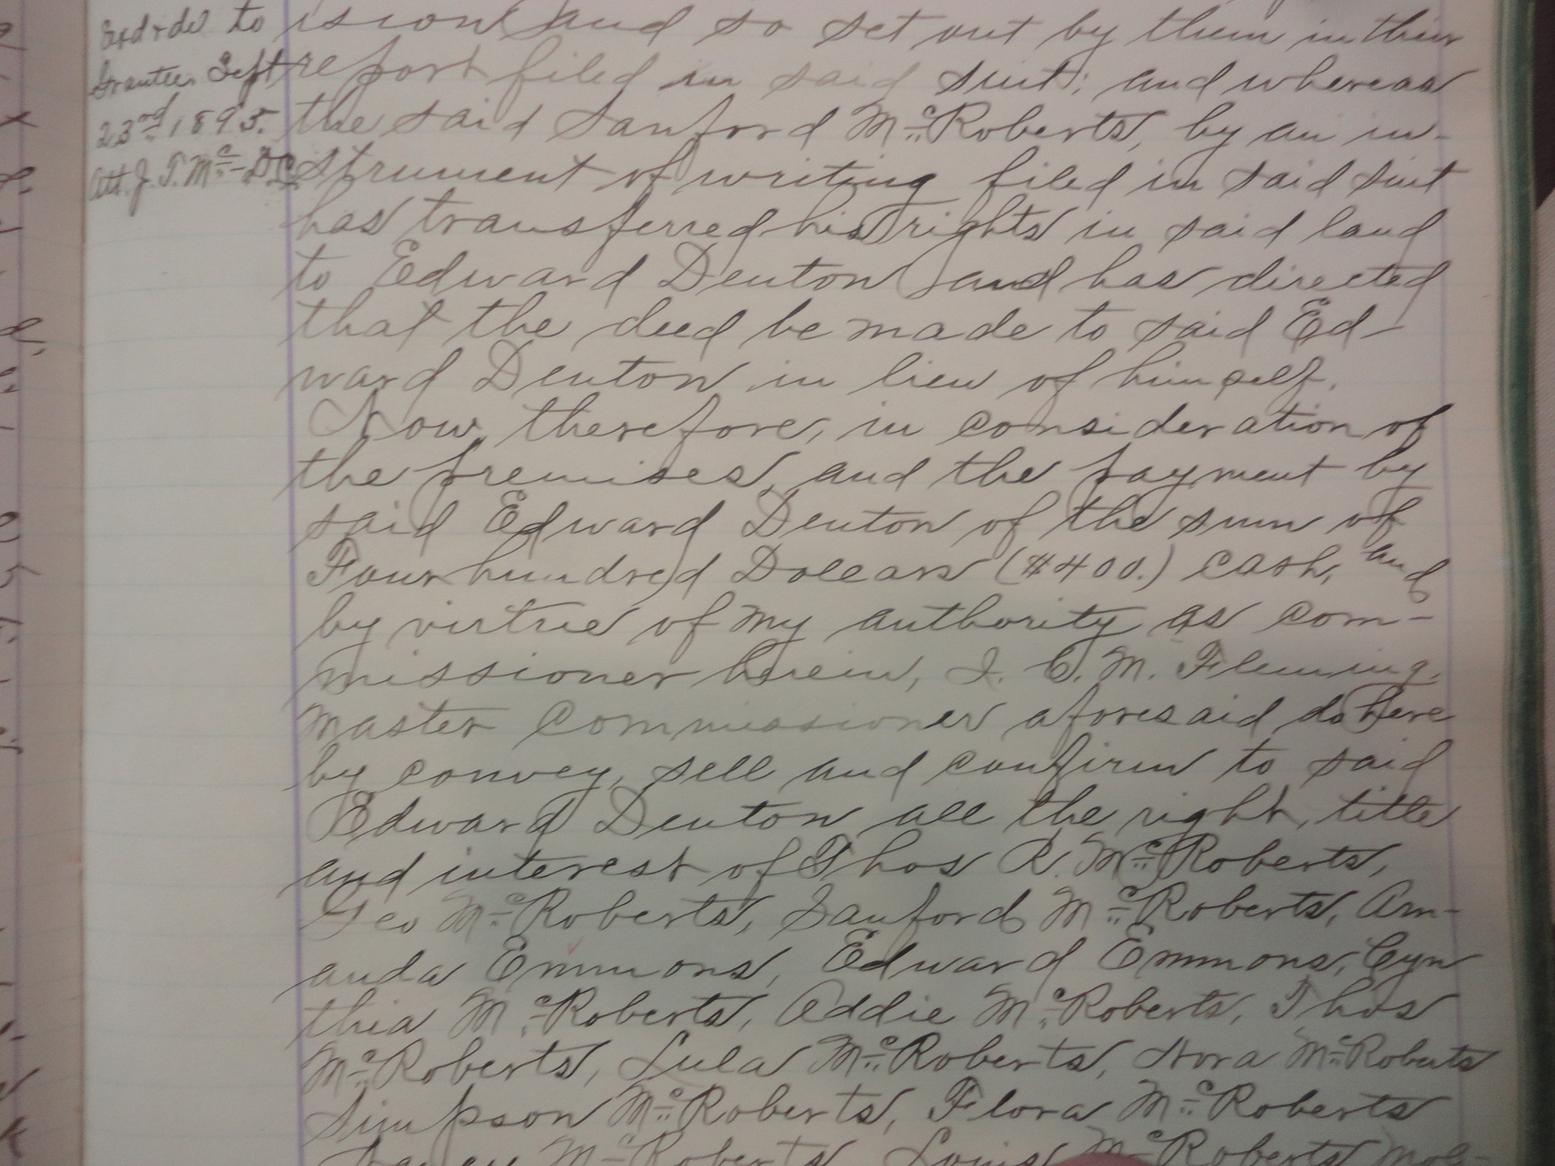 Exd & del to
Grantee Sept
23rd 1895.
Att. J. T. Mc- DC
ision and so set out by them in their
report filed in said suit; and whereas
the said Sanford McRoberts, by an in-
strument of writing filed in said suit
has transferred his rights in said land
to Edward Denton and has directed
that the deed be made to said Ed-
ward Denton in lieu of himself.
Now, therefore, in consideration of
the premises, and the payment by
said Edward Denton of the sum of
Four hundred Dollars ($400.) cash, and
by virtue of my authority as com-
missioner herein, I. C. M. Fleming,
Master Commissioner aforesaid do here
by convey, sell and confirm to said
Edward Denton all the right, title
and interest of Thos R. McRoberts,
Geo McRoberts, Sanford McRoberts, Am-
anda Emmons, Edward Emmons, Cyn
thia McRoberts, Addie McRoberts, Thos
McRoberts, Lula McRoberts, Nora McRoberts
Simpson McRoberts, Flora McRoberts
McRoberts, Louis McRoberts